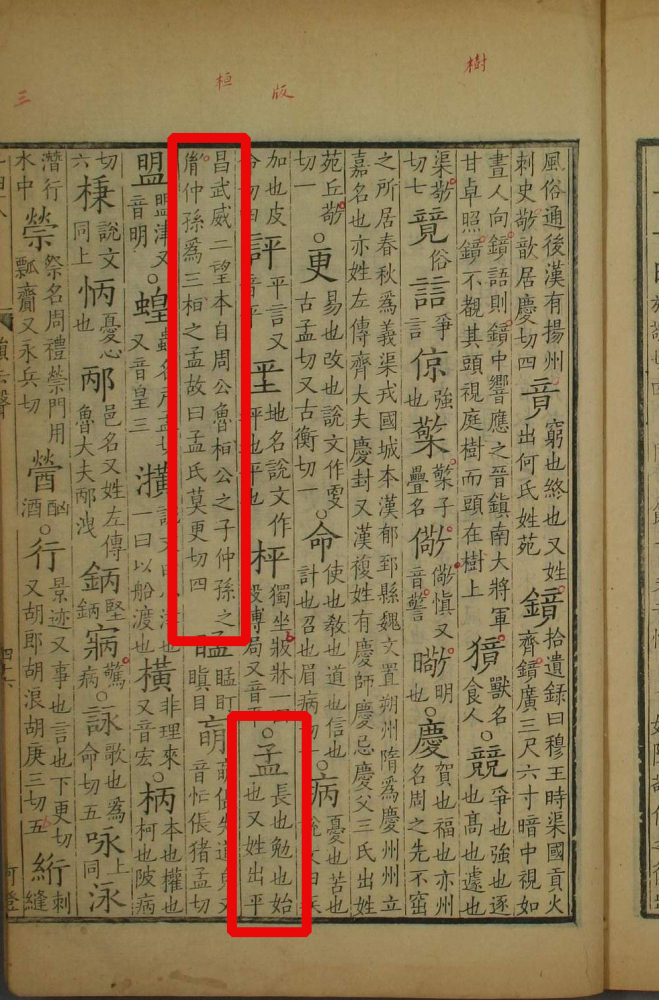 樹
版
桓
三
風俗通後漢有揚州刺史敬歆居慶切四竟窮也終也又姓出何氏姓苑鏡拾遺録曰穆王時渠國貢火齊鏡廣三尺六寸暗中視如
晝人向鏡語則鏡中響應之晉鎮南大將軍甘卓照鏡不觀其頭視庭樹而頭在樹上獍獸名食人○競爭也強也逐也高也遽也
渠敬切七竸俗誩爭言倞強也檠檠子疊名儆儆慎又音警曔曔明也○慶賀也福也亦州名周之先不窋
之所居春秋為義渠戎國城本漢郁郅縣魏文置朔州隋為慶州州立嘉名也亦姓左傳齊大夫慶封又漢複姓有慶師慶忌慶父三氏出姓
苑丘敬切一○更易也改也說文作㪅古孟切又古衡切一○命使也教也道也信也計也召也眉病切一○病憂也苦也說文曰疾
加也皮命切四評平言又音平坪地名說文作坪也平也枰獨坐板牀一曰投博局又音平○孟長也勉也始也又姓出平
昌武威二望本自周公魯桓公之子仲孫之胤仲孫為三桓之孟故曰孟氏莫更切四盯瞋目倀失道皃又音忙倀猪孟切
盟盟津又音明○蝗蟲名戶孟切又音皇三潢說文曰小津也一曰以船渡也橫非理來又音宏○柄本也權也柯也陂病
切六棅說文同上怲憂心也邴邑名又姓左傳魯大夫邴洩鈵堅鈵寎驚病○詠歌也為命切五咏上同泳
潛行水中禜祭名周禮禜門用瓢齎又永兵切醟酗酒○行景迹又事也言也下更切又胡郎胡浪胡庚三切五絎刺縫